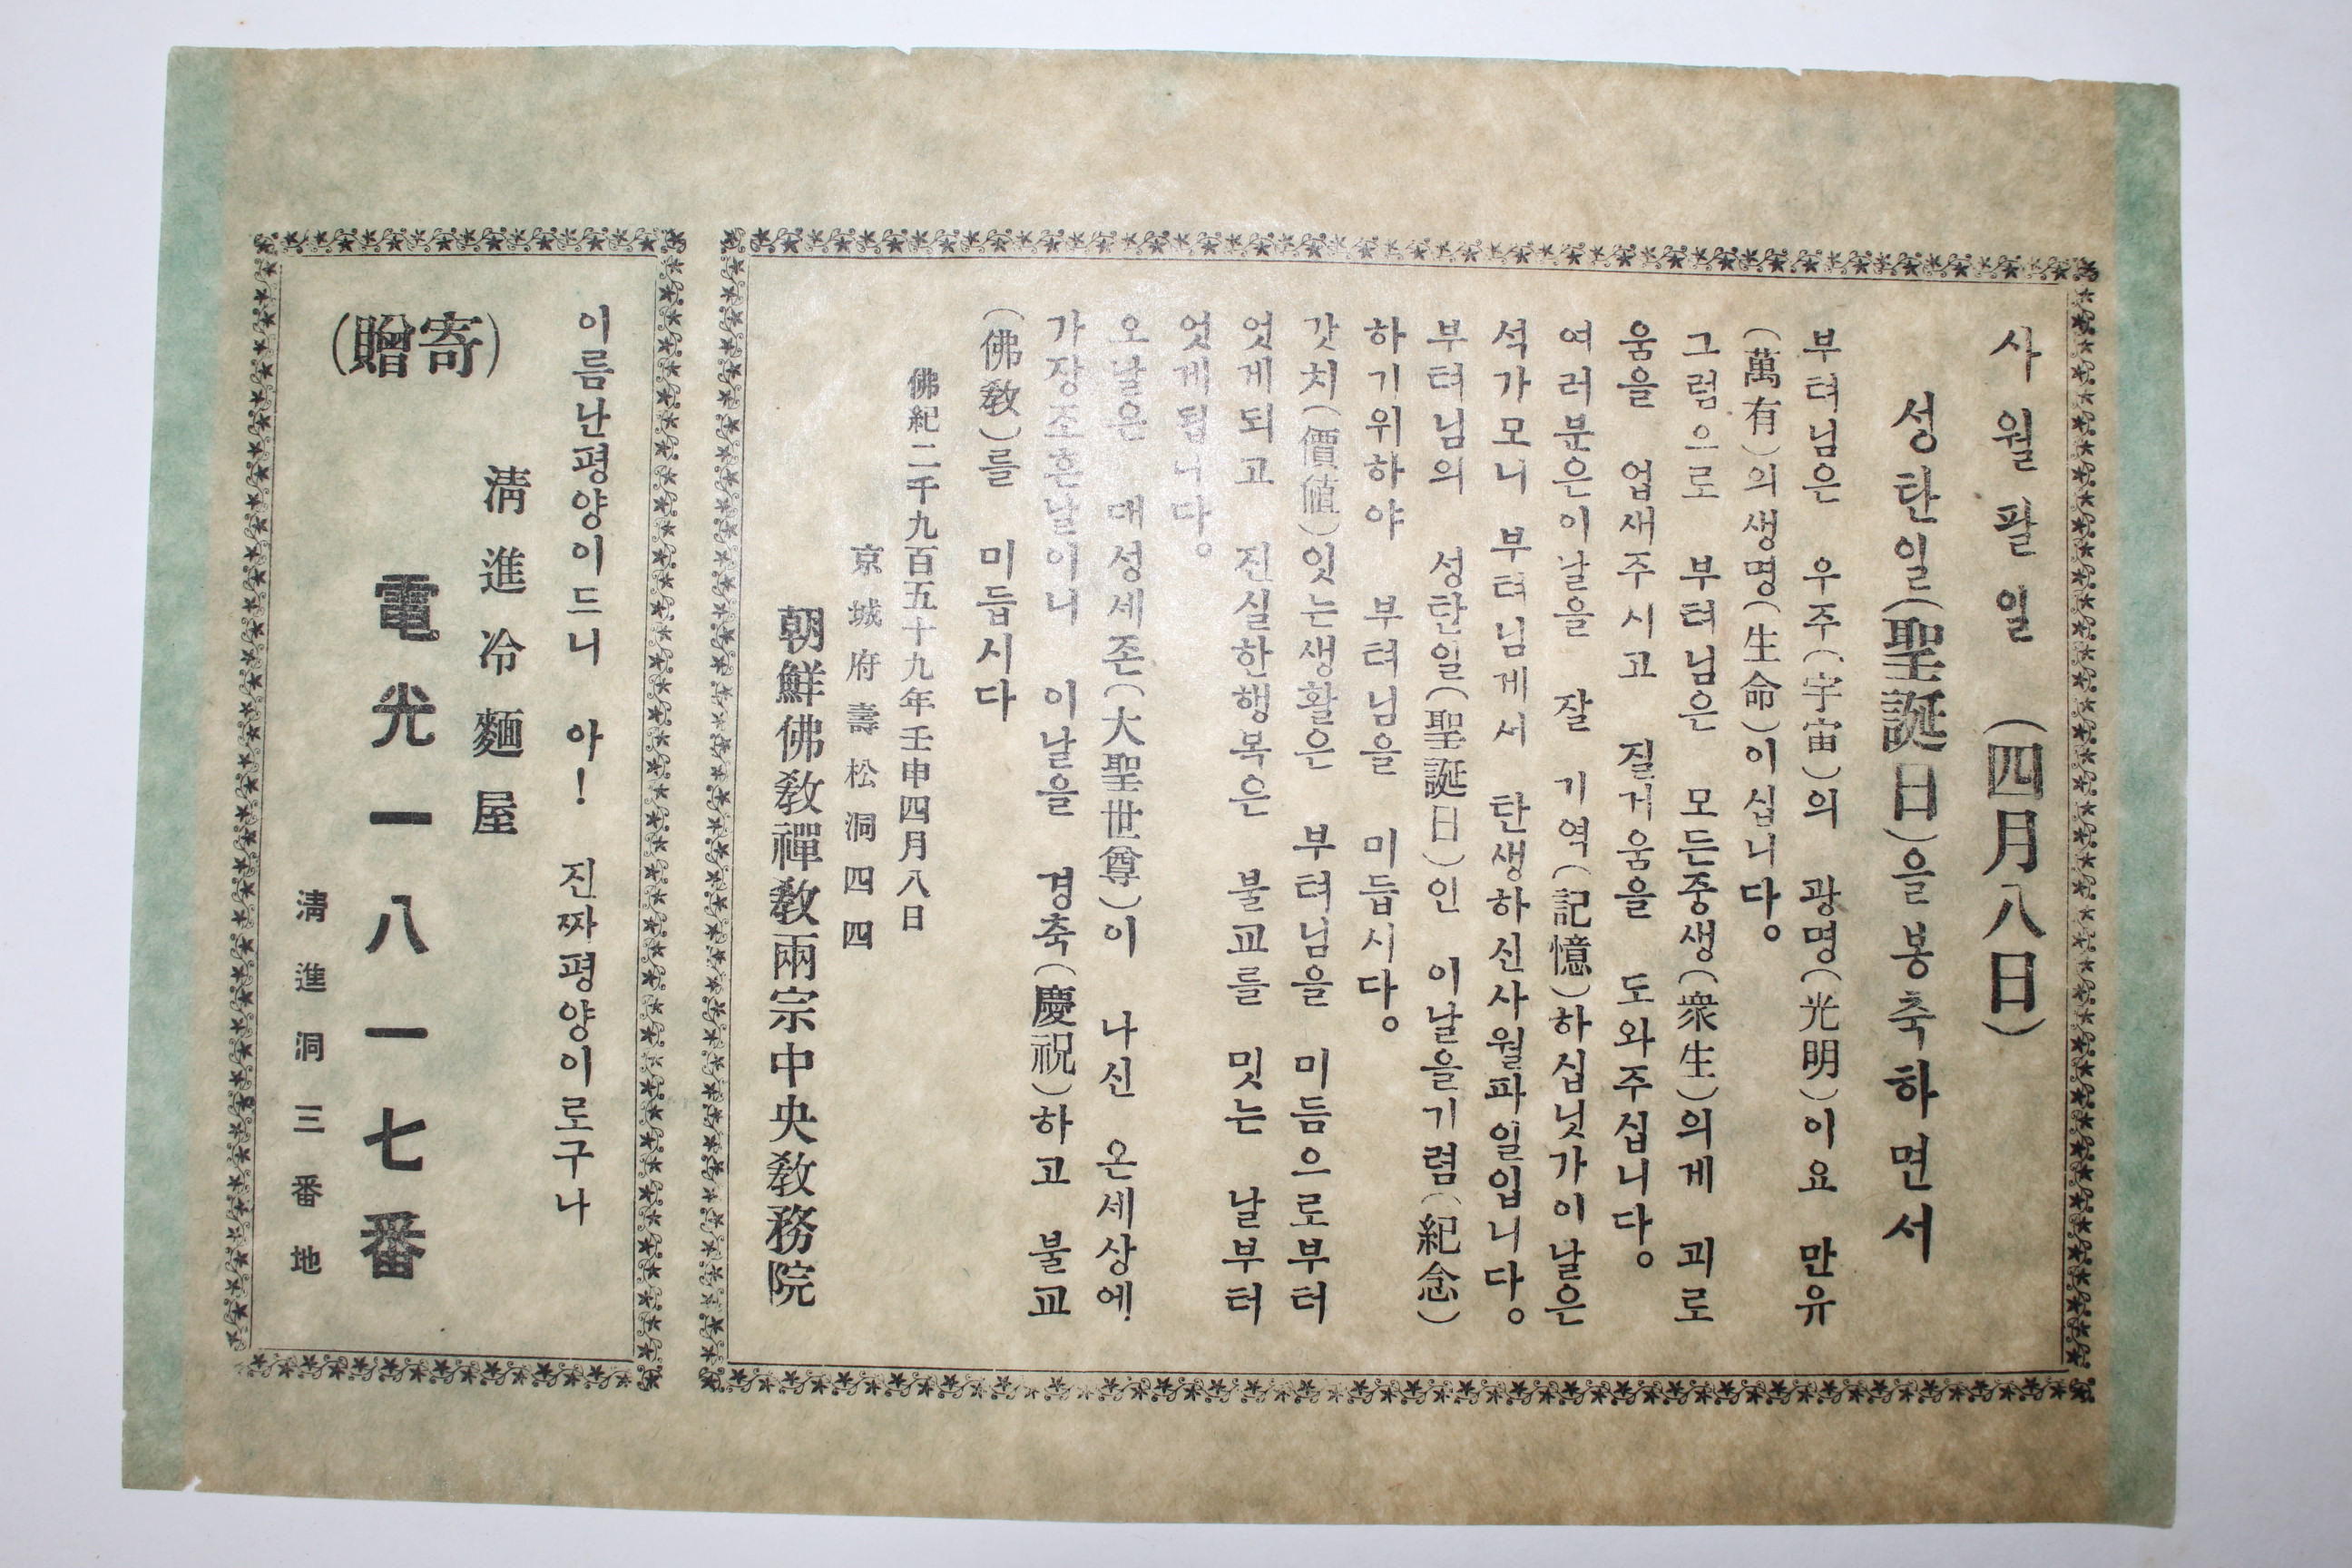 사월팔일 (四月八日)
성탄일(聖誕日)을봉축하면서
부텨님은 우주(宇宙)의 광명(光明)이요 만유
(萬有)의생명(生命)이십니다。
그럼으로 부텨님은 모든중생(衆生)의게 괴로
움을 업새주시고 질거움을 도와주십니다。
여러분은이날을 잘 기역(記憶)하십닛가이날은
석가모니 부텨님게서 탄생하신사월파일입니다。
부텨님의 성탄일(聖誕日)인 이날을기렴(紀念)
하기위하야 부텨님을 미듭시다。
갓치(價値)잇는생활은 부텨님을 미듬으로부터
엇게되고 진실한행복은 불교를 밋는 날부터
엇게됩니다。
오날은 대성세존(大聖世尊)이 나신 온세상에
가장조흔날이니 이날을 경축(慶祝)하고 불교
(佛敎)를 미듭시다
佛紀二千九百五十九年壬申四月八日
京城府壽松洞四四
朝鮮佛敎禪敎兩宗中央敎務院
이름난평양이드니 아! 진짜평양이로구나
(寄贈)
淸進冷麵屋
電光一八一七番
淸進洞三番地